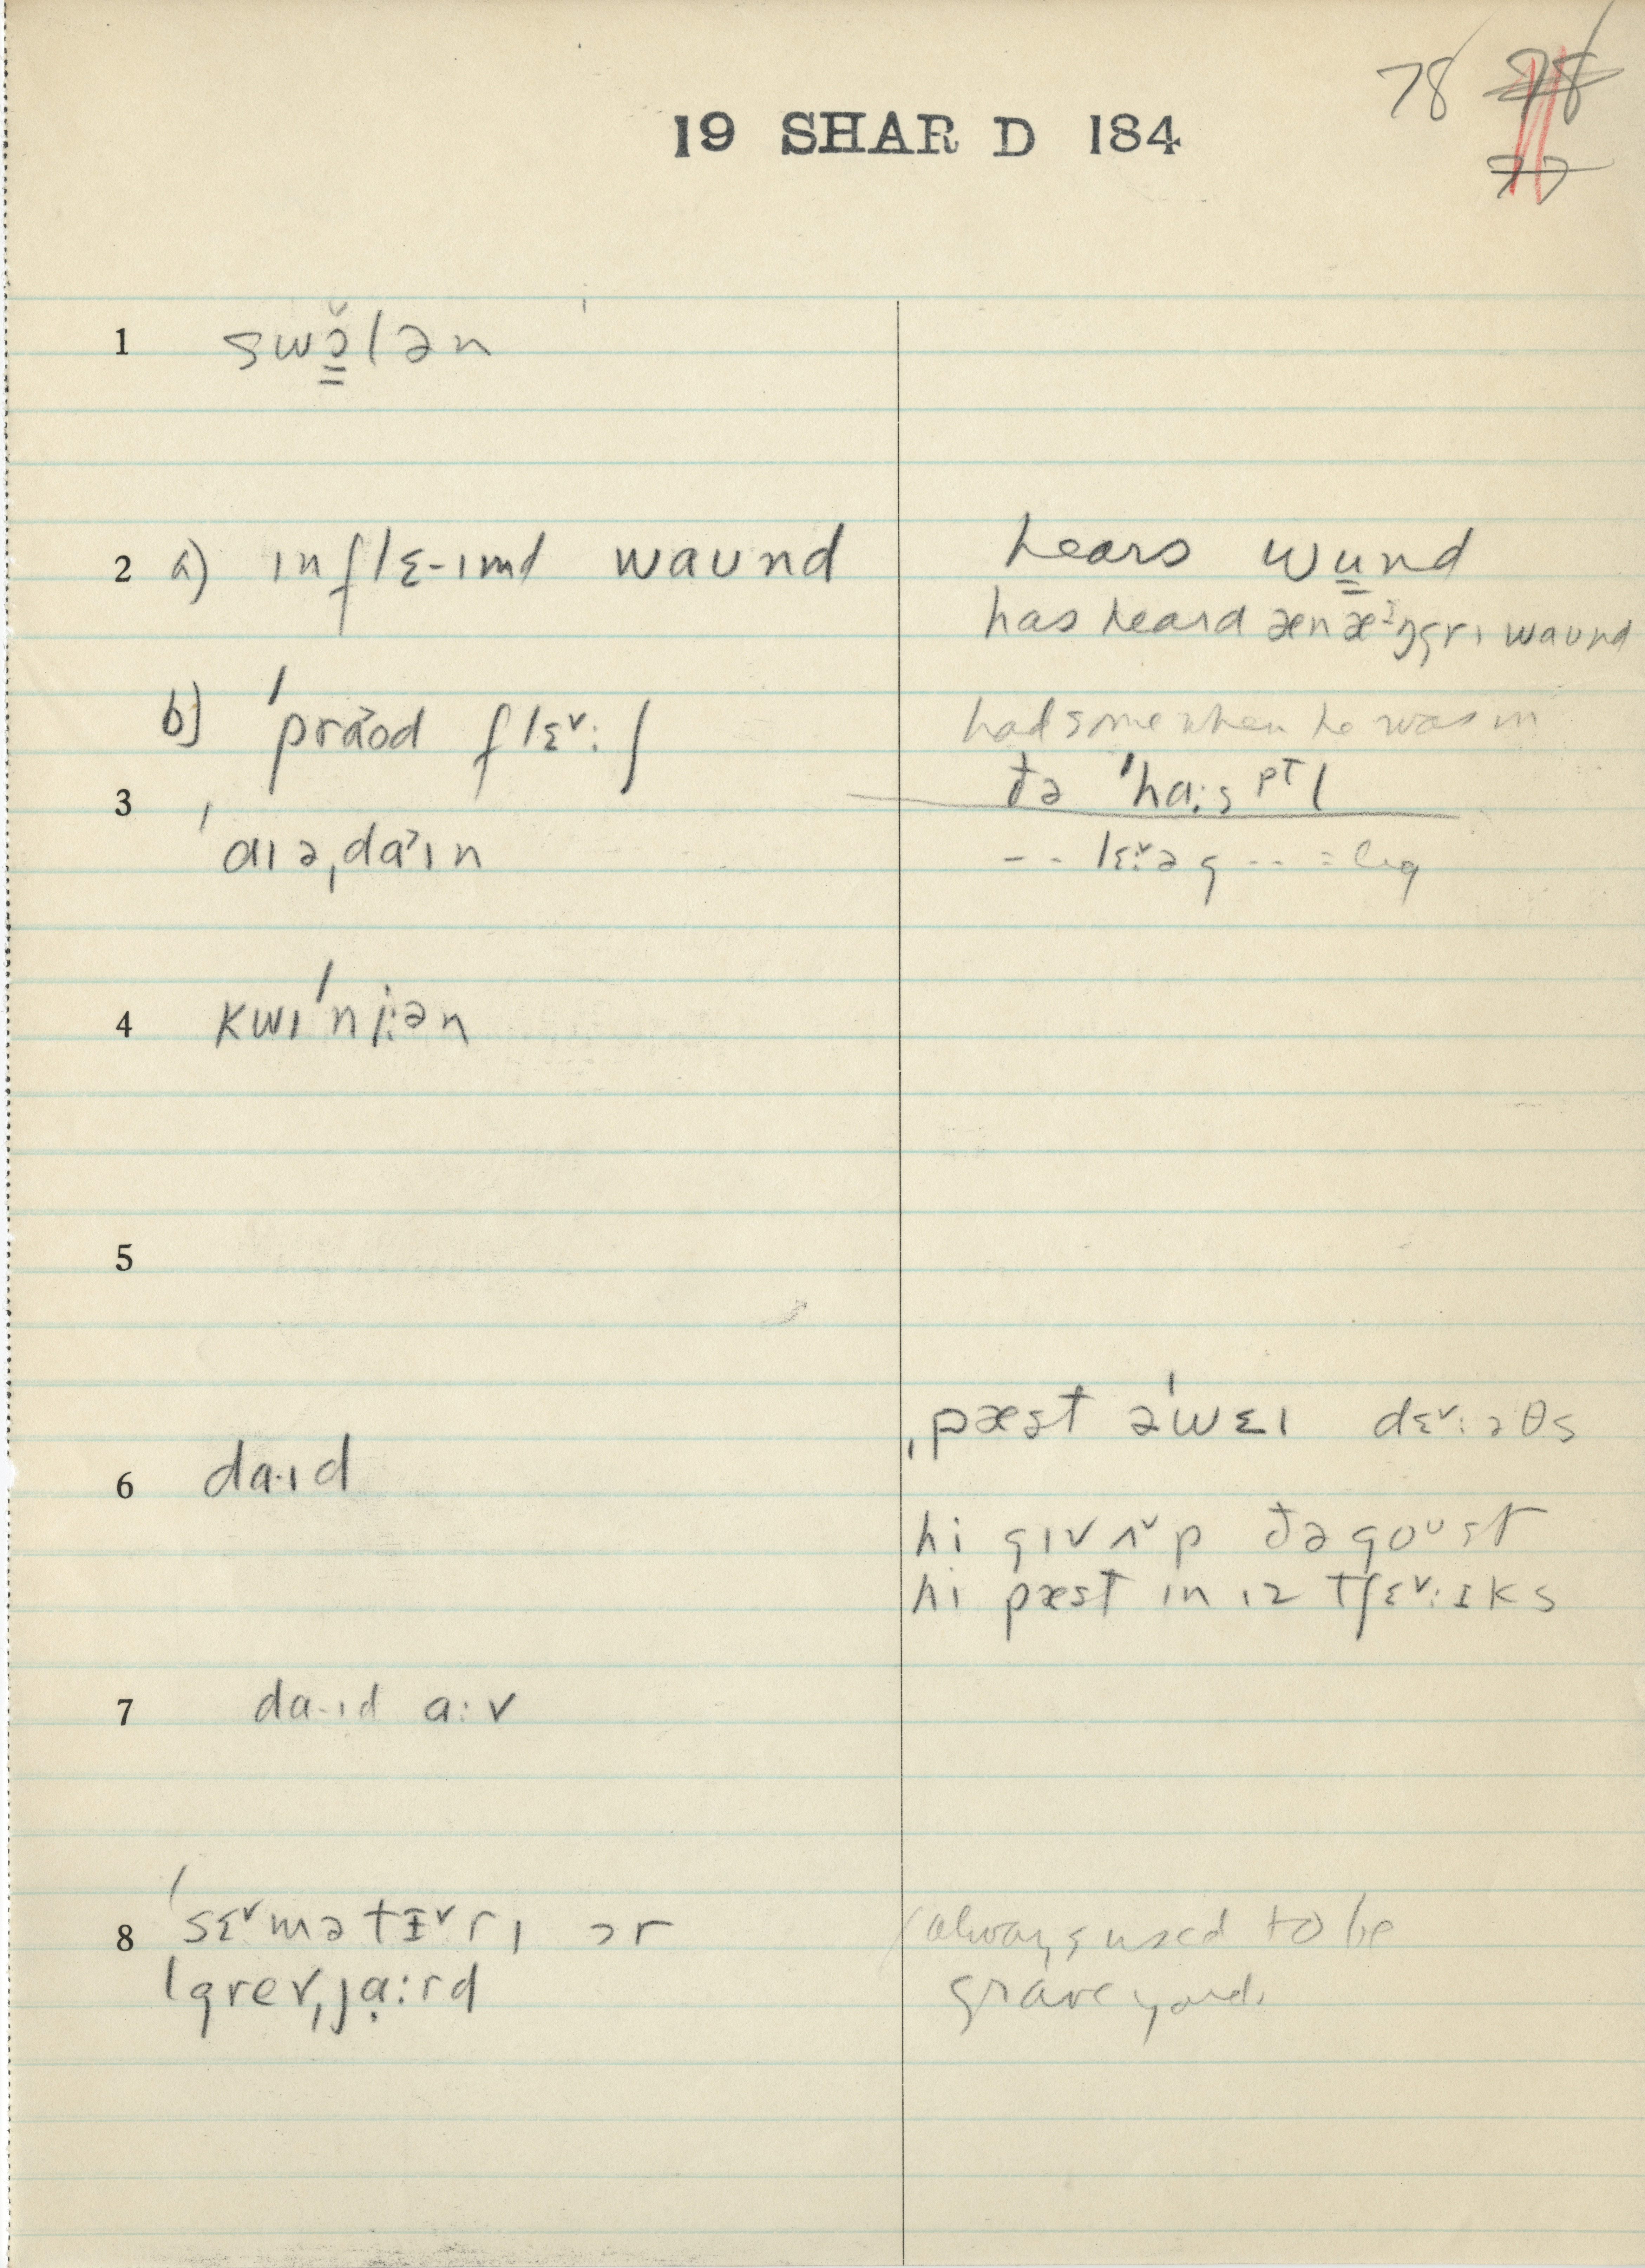 78 78
77
19 SHAR D 184
1 swɔ̌lən
2 a) ɪnflɛ-ɪmd waʊnd
hears wu̳nd
has heard æn æ˃-ŋgrɪ waʊnd
b) ˈpra˃ʊd flɛˇ:ʃ
had some when he was in
ðə ˈhɑ:spTl
3 ˈaɪəˌda˃ɪn
-- lɛˇ:əg -- = leg
4 kwɪˈnj:ən
5
ˌpæst əˈwɛɪ dɛˇ:əθs
6 da·ɪd
hi gɪv ʌˇp ðə goᵘst
hi pæst ɪn ɪz tʃɛˇ:ɪks
7 da·ɪd a:v
8 ˈsɛˇmətɪˇrɪ ɔr
always used to be
ˈgrevˌjɑ:rd
grave yard.